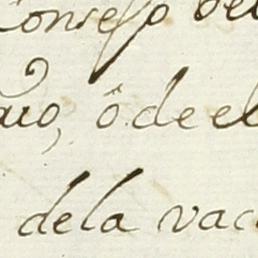 Consejo de
ò de el
de la vac